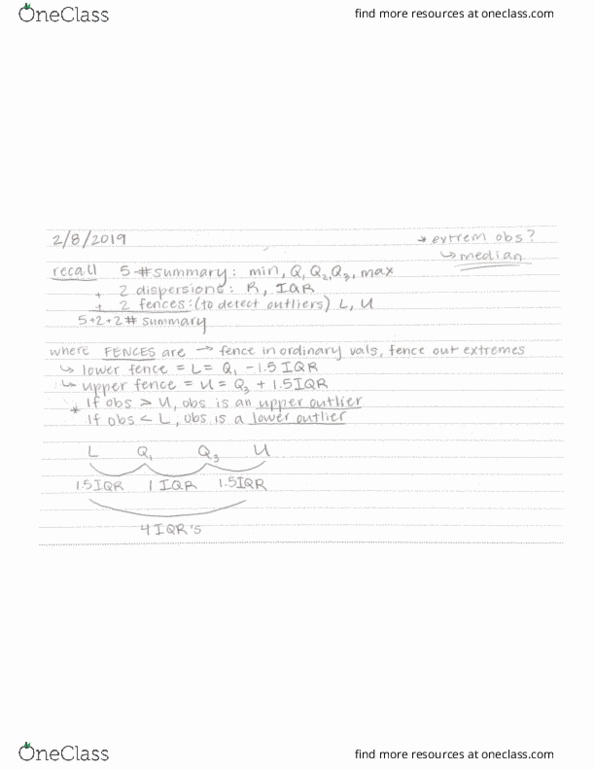 OneClass find more resources at oneclass.com
2/8/2019 → extrem obs?
↳ median
recall 5-# summary: min, Q₁, Q₂, Q₃, max
+ 2 dispersions: R, IQR
+ 2 fences: (to detect outliers) L, U
5+2+2 # summary
where FENCES are → fence in ordinary vals, fence out extremes
↳ lower fence = L = Q₁ - 1.5 IQR
↳ upper fence = U = Q₃ + 1.5IQR
* If obs > U, obs is an upper outlier
If obs < L, obs is a lower outlier
L Q₁ Q₃ U
1.5IQR 1 IQR 1.5IQR
4 IQR's
OneClass find more resources at oneclass.com